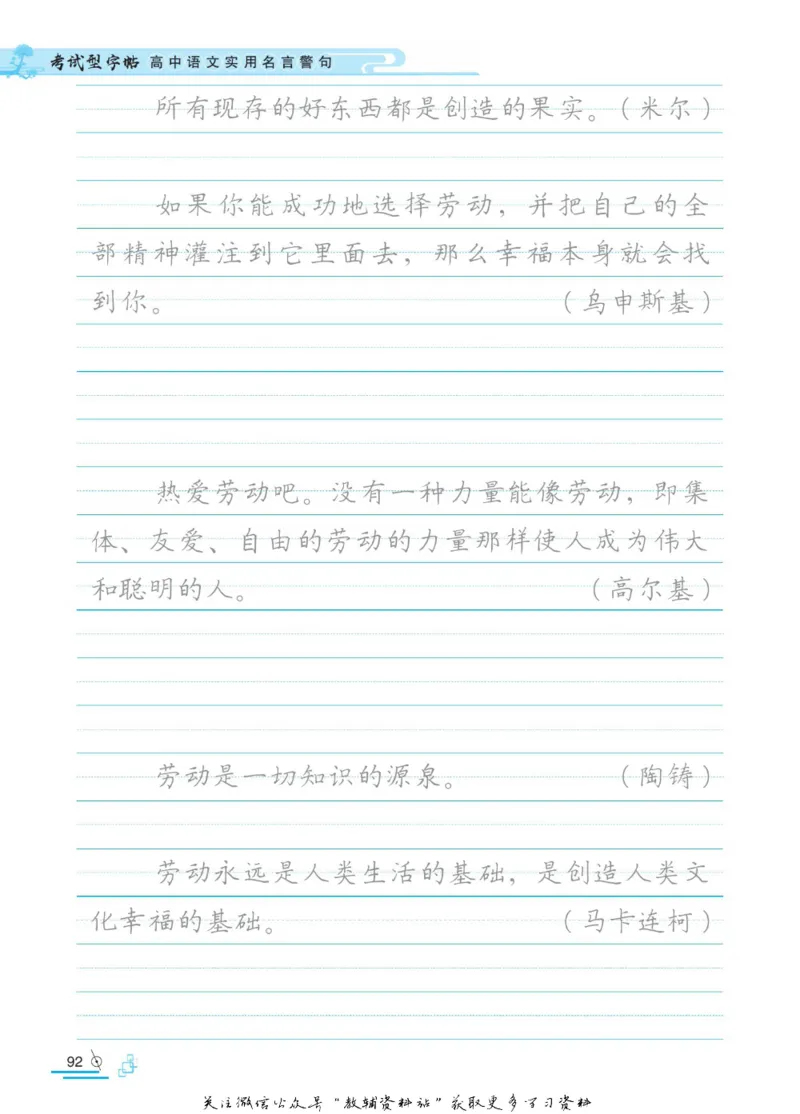 考试型字帖 高中语文实用名言警句
所有现存的好东西都是创造的果实。（米尔）
如果你能成功地选择劳动，并把自己的全
部精神灌注到它里面去，那么幸福本身就会找
到你。（乌申斯基）
热爱劳动吧。没有一种力量能像劳动，即集
体、友爱、自由的劳动的力量那样使人成为伟大
和聪明的人。（高尔基）
劳动是一切知识的源泉。（陶铸）
劳动永远是人类生活的基础，是创造人类文
化幸福的基础。（马卡连柯）
92
关注微信公众号“教辅资料站”获取更多学习资料